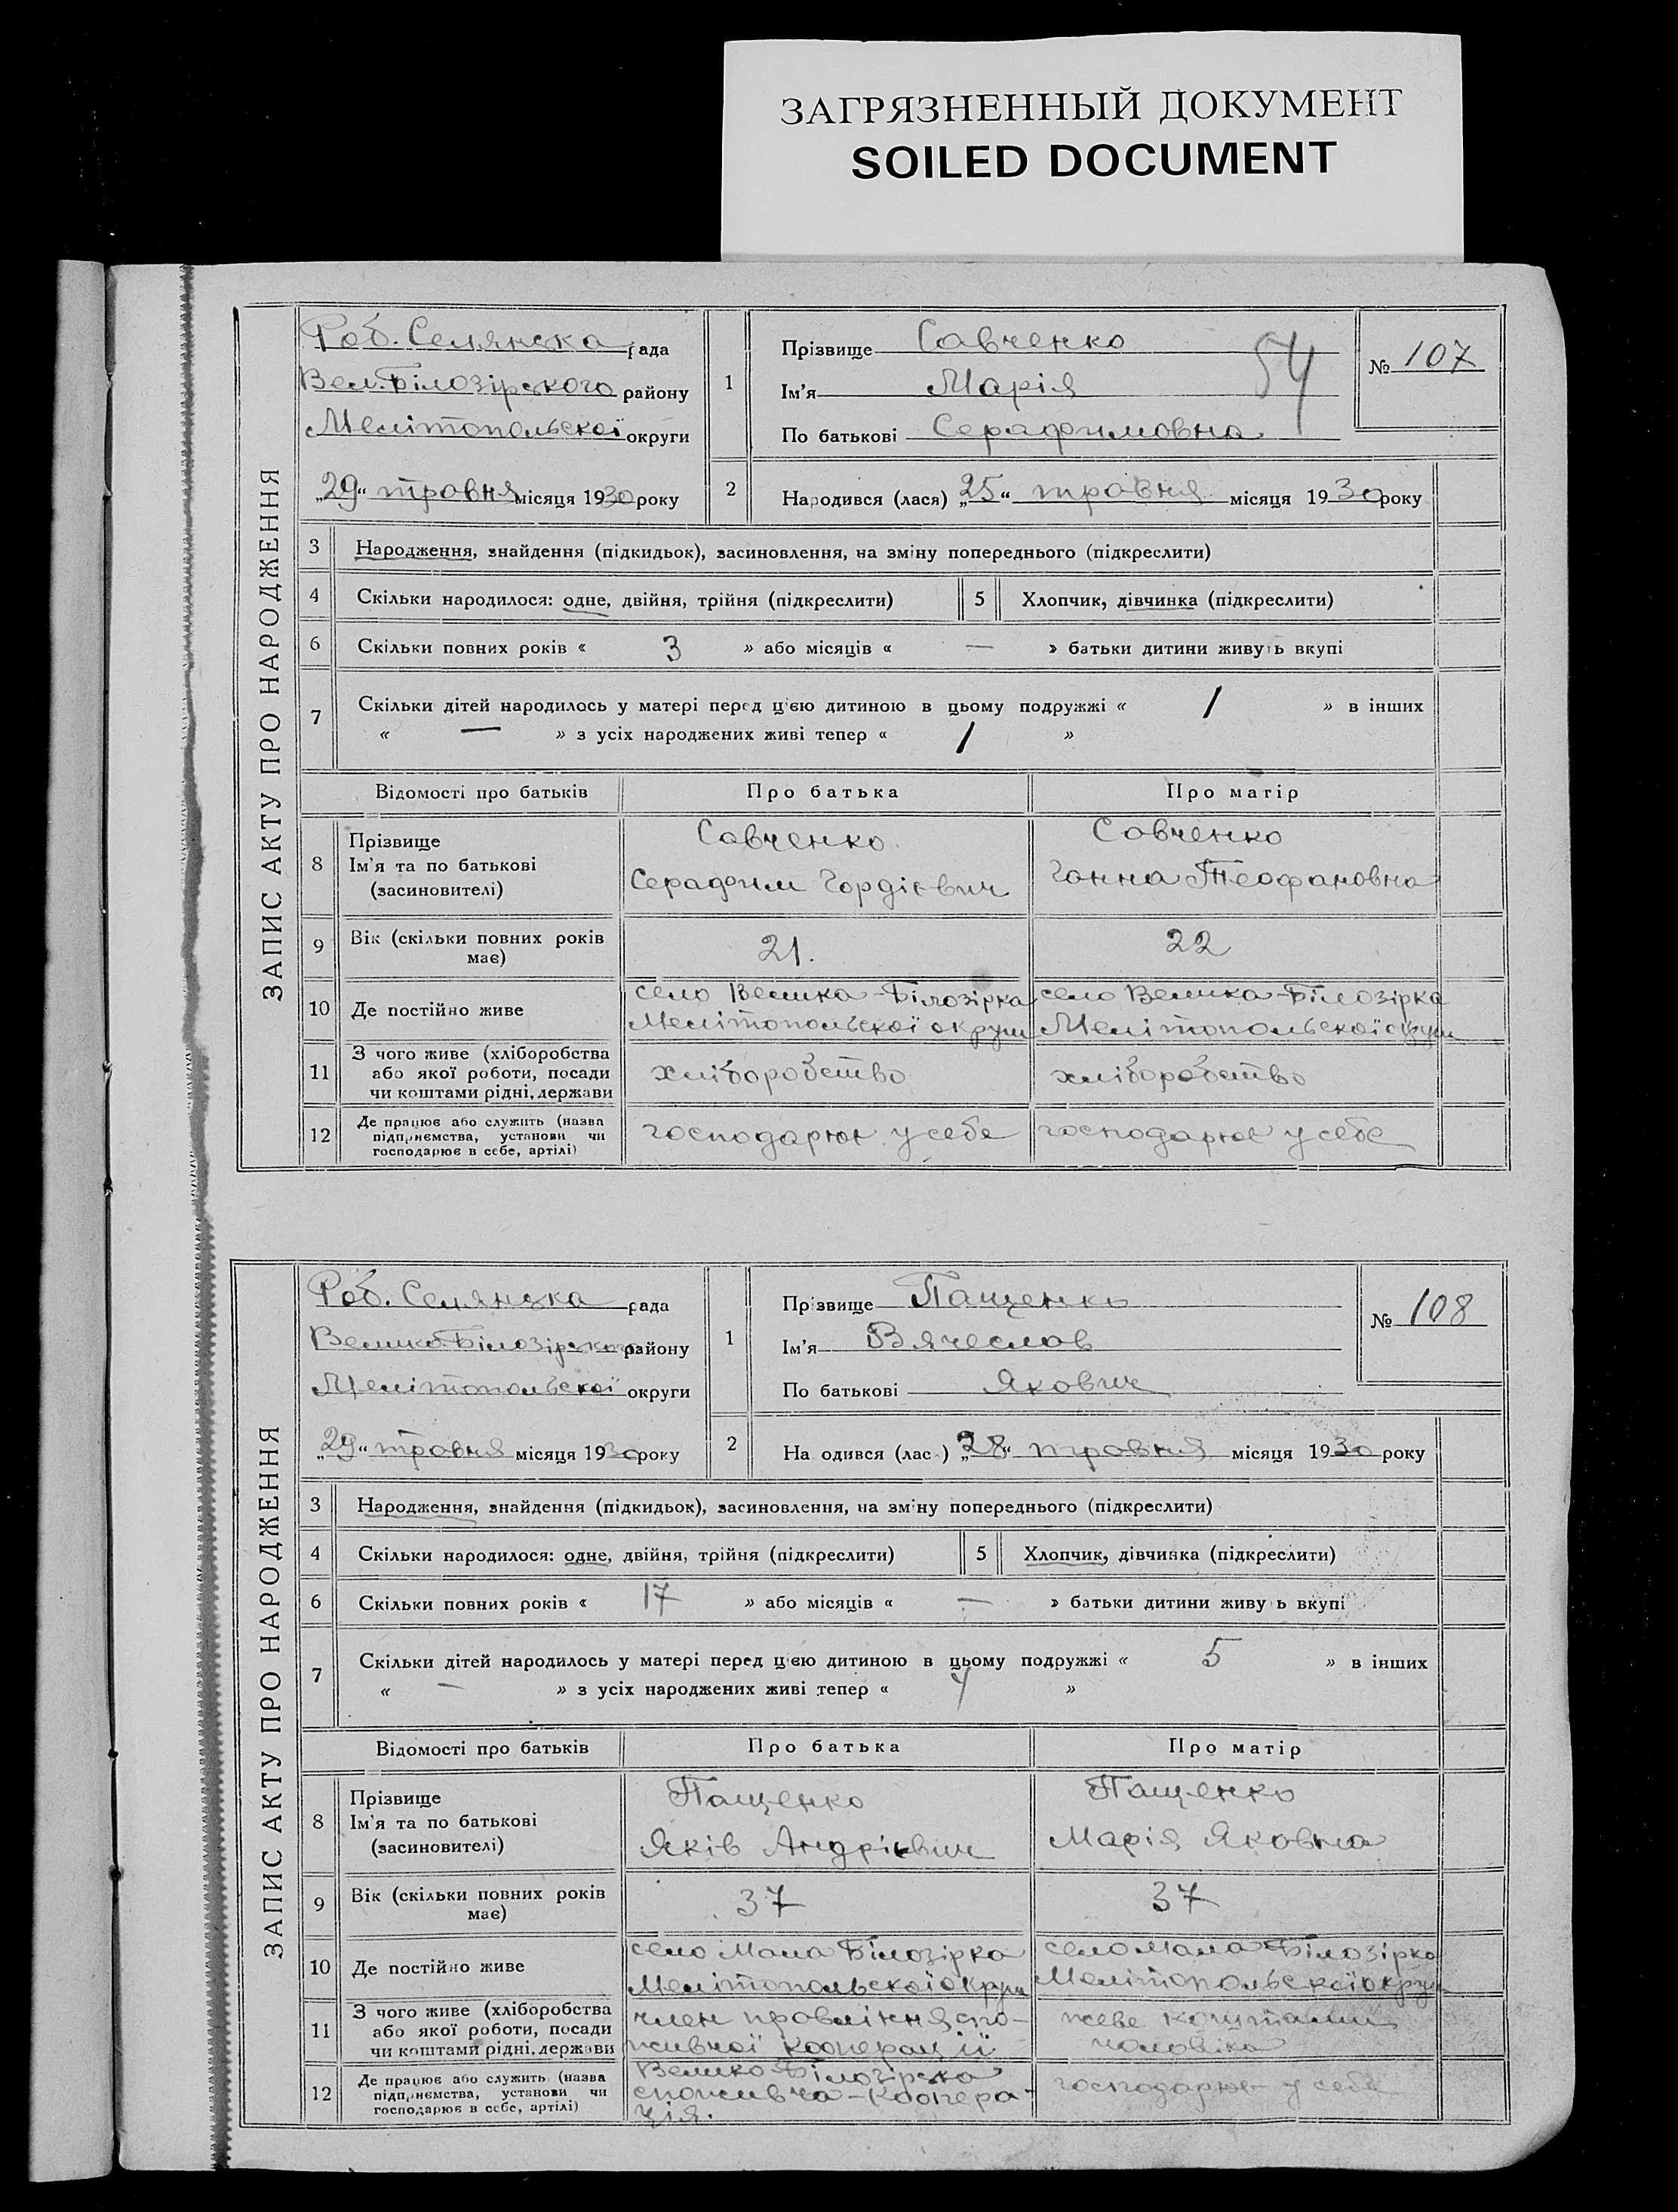 ЗАГРЯЗНЕННЫЙ ДОКУМЕНТ
SOILED DOCUMENT
ЗАПИС АКТУ ПРО НАРОДЖЕННЯ
Роб. Селянска рада
Вел. Білозірського району
Мелітопольскої округи
„29“ травня місяця 1930 року
1
Прізвище Савченко
Ім'я Марія
По батькові Серафимовна
54
№ 107
2
Народився (лася) „25“ травня місяця 1930 року
3 Народження, знайдення (підкидьок), засиновлення, на зміну попереднього (підкреслити)
4 Скільки народилося: одне, двійня, трійня (підкреслити) 5 Хлопчик, дівчинка (підкреслити)
6 Скільки повних років « 3 » або місяців « — » батьки дитини живуть вкупі
7 Скільки дітей народилось у матері перед цією дитиною в цьому подружжі « 1 » в інших
« — » з усіх народжених живі тепер « 1 »
Відомості про батьків Про батька Про матір
8 Прізвище Савченко Савченко
Ім'я та по батькові Серафим Гордієвич Ганна Теофановна
(засиновителі)
9 Вік (скільки повних років має) 21. 22
10 Де постійно живе село Велика-Білозірка село Велика-Білозірка
Мелітопольскої округи Мелітопольскої округи
11 З чого живе (хліборобства або якої роботи, посади чи коштами рідні, держави хліборобство хліборобство
12 Де працює або служить (назва підприємства, установи чи господарює в себе, артілі) господарює у себе господарює у себе
ЗАПИС АКТУ ПРО НАРОДЖЕННЯ
Роб. Селянска рада
Велико-Білозірского району
Мелітопольскої округи
„29“ травня місяця 1930 року
1
Прізвище Пащенко
Ім'я Вячеслав
По батькові Якович
№ 108
2
На одився (лас ) „28“ травня місяця 1930 року
3 Народження, знайдення (підкидьок), засиновлення, на зміну попереднього (підкреслити)
4 Скільки народилося: одне, двійня, трійня (підкреслити) 5 Хлопчик, дівчинка (підкреслити)
6 Скільки повних років « 17 » або місяців « — » батьки дитини живу ь вкупі
7 Скільки дітей народилось у матері перед цією дитиною в цьому подружжі « 5 » в інших
« — » з усіх народжених живі тепер « 4 »
Відомості про батьків Про батька Про матір
8 Прізвище Пащенко Пащенко
Ім'я та по батькові Яків Андрієвич Марія Яковна
(засиновителі)
9 Вік (скільки повних років має) 37 37
10 Де постійно живе село Мала Білозірка село Мала Білозірка
Мелітопольскої округи Мелітопольскої округи
11 З чого живе (хліборобства або якої роботи, посади чи коштами рідні, держави член правління спо-
живчої кооперації живе коштами
чоловіка
12 Де працює або служить (назва підприємства, установи чи господарює в себе, артілі) Велико-Білозірска
споживча-коопера-
ція. господарює у себе